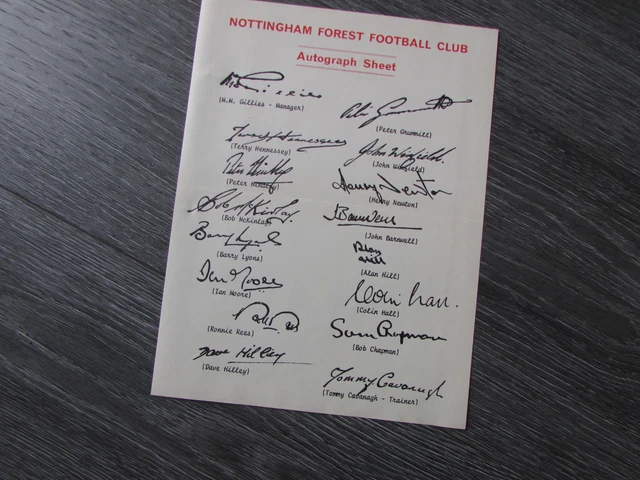 NOTTINGHAM FOREST FOOTBALL CLUB
Autograph Sheet
(M.M. Gillies - Manager)
Peter Grummitt
(Peter Grummitt)
Terry Hennessey
(Terry Hennessey)
John Winfield.
(John Winfield)
Peter Hindley
(Peter Hindley)
Henry Newton
(Henry Newton)
Bob McKinlay.
(Bob McKinlay)
J. Barnwell
(John Barnwell)
Barry Lyons
(Barry Lyons)
Alan Hill
(Alan Hill)
Ian Moore
(Ian Moore)
Colin Hall.
(Colin Hall)
(Ronnie Rees)
Sam Chapman
(Bob Chapman)
Dave Hilley
(Dave Hilley)
Tommy Cavanagh
(Tommy Cavanagh - Trainer)